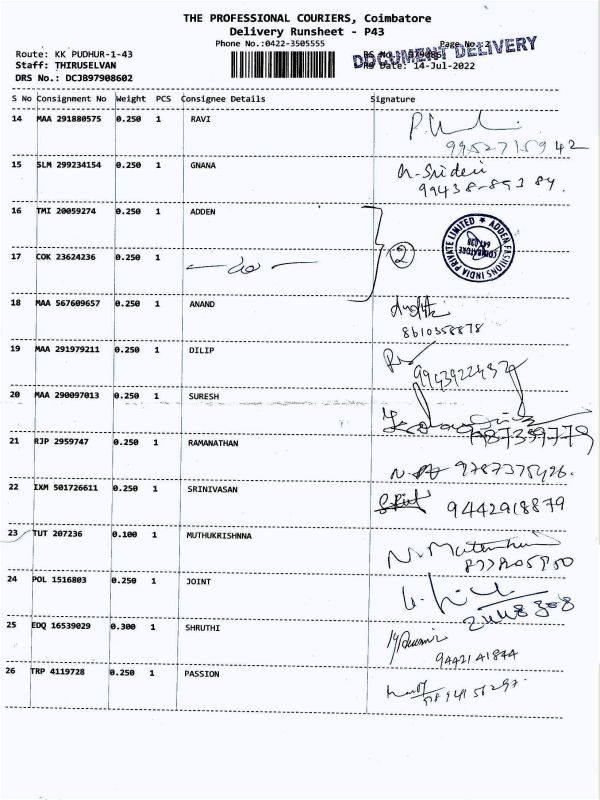 THE PROFESSIONAL COURIERS, Coimbatore
Delivery Runsheet - P43
Phone No.:0422-3505555
Page No.:2
DOCUMENT DELIVERY
Route: KK PUDHUR-1-43
Staff: THIRUSELVAN
Date: 14-Jul-2022
DRS No.: DCJB97908602
S No Consignment No Weight PCS Consignee Details Signature
14 MAA 291880575 0.250 1 RAVI
9952715942
15 SLM 299234154 0.250 1 GNANA
n-Sridevi
99438-89384.
16 TMI 20059274 0.250 1 ADDEN
ADDEN FASHIONS INDIA PRIVATE LIMITED ★
COIMBATORE
17 COK 23624236 0.250 1 — do — 2
18 MAA 567609657 0.250 1 ANAND
8610358878
19 MAA 291979211 0.250 1 DILIP
20 MAA 290097013 0.250 1 SURESH
21 RJP 2959747 0.250 1 RAMANATHAN
9787375426.
22 IXM 501726611 0.250 1 SRINIVASAN
9442918879
23 TUT 207236 0.100 1 MUTHUKRISHNNA
24 POL 1516803 0.250 1 JOINT
25 EDQ 16539029 0.300 1 SHRUTHI
9442141844
26 TRP 4119728 0.250 1 PASSION